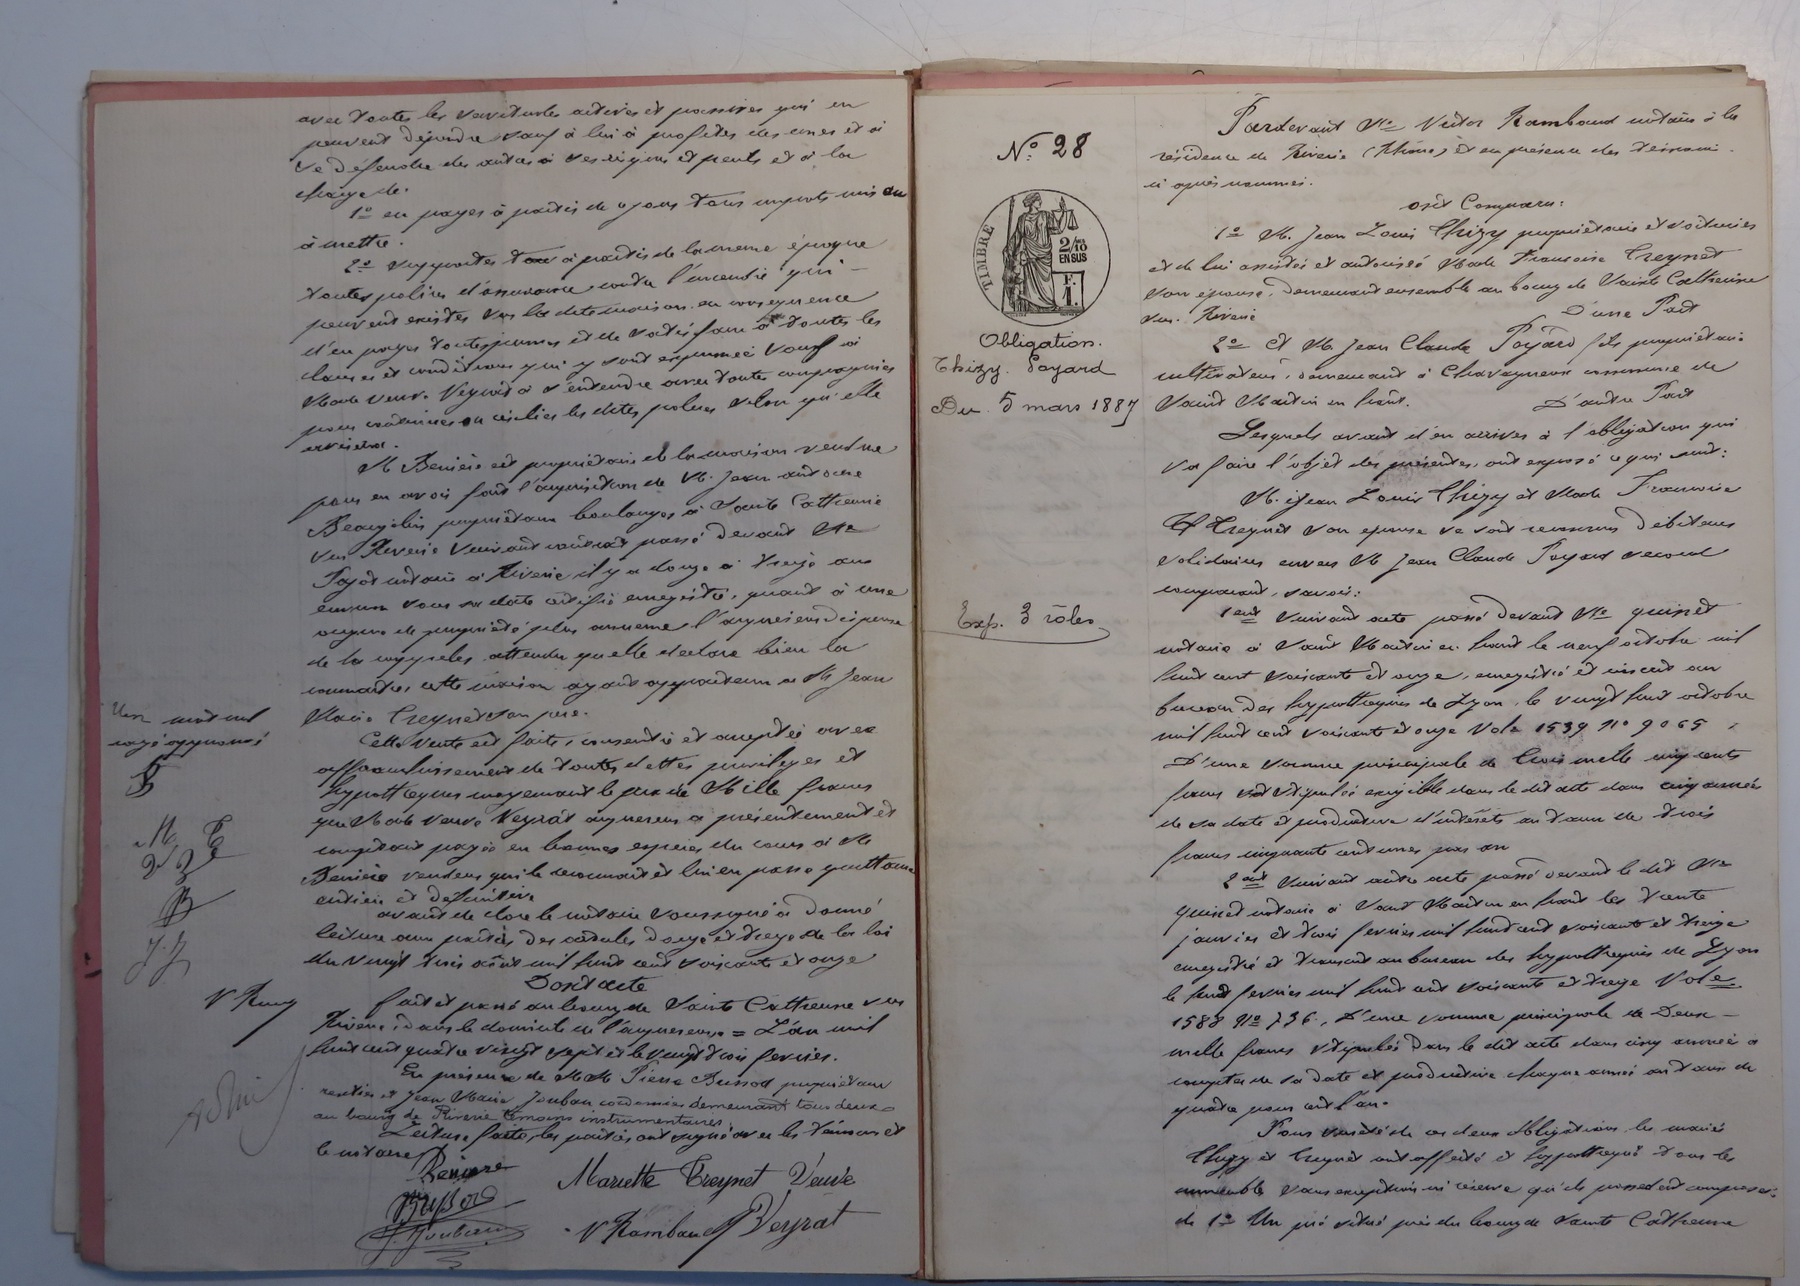 avec toutes les servitudes actives et passives qui en
peuvent dépendre sauf à lui à profiter des unes et à
se défendre des autres à ses risques et perils et à la
charge de.
1o en payer à partir de ce jour tous impots mis ou
à mettre.
2o supporter à partir de la meme époque
toutes polices d'assurance contre l'incendie qui
peuvent exister sur la dite maison, en consequence
d'en payer toutes primes et de satisfaire à toutes les
clauses et conditions qui y sont exprimées sauf à
Made veuve Veyrat à s'entendre avec toute compagnies
pour continuer ou résilier les dites polices selon qu'elle
avisera.
M Benière est propriétaire de la maison vendue
pour en avoir fait l'acquisition de M. Jean antoine
Beaujolin propriétaire boulanger à Sainte Catherine
sur Riverie suivant contrat passé devant Me
notaire à Riverie il y a douze à treize ans
environ sous sa date certifié enregistré, quant à une
origine de propriété plus ancienne l'acquereur dispense
de la rappeler attendu qu'elle declare bien la
connaitre, cette maison ayant appartenu a M Jean
Marie Treynet son pere.
Cette vente est faite, consentie et acceptée avec
affranchissement de toutes dettes privileges et
hypotheques moyennant le prix de Mille francs
que Made veuve Veyrat acquereur a présentement et
comptant payée en bonnes especes du cours à M
Benière vendeur qui le reconnait et lui en passe quittance
entiere et définitive
avant de clore le notaire soussigné à donné
lecture aux parties des articles douze et treize de la loi
du vingt trois aôut mil huit cent soixante et onze
Dont acte
fait et passé au bourg de Sainte Catherine sur
Riverie, dans le domicile de l'acquereur = L'an mil
huit cent quatre vingt sept et le vingt trois fevrier.
En présence de MM Pierre Bussod propriétaire
rentier et Jean Marie Jouban cordonnier demeurant tous deux
au bourg de Riverie temoins instrumentaires
Lecture faite, les parties ont signé avec les témoins et
le notaire
Beniere
Mariette Treynet Veuve
Bussod
Veyrat
J. Jouban
V Rambaud
Un mot nul
rayé approuvé
B
M
T
V
B
J. J
V Ramb
No 28
TIMBRE
2/10
EN SUS
F.
1.
Obligation.
Thizy. Poyard
Du. 5 mars 1887
Exp. 3 rôles
Pardevant Me Victor Rambaud notaire à la
résidence de Riverie (Rhône) et en présence des témoins
ci après nommés.
ont Comparu:
1o M. Jean Louis Thizy propriétaire et voiturier
et de lui assistée et autorisée Made Francoise Treynet
son épouse, demeurant ensemble au bourg de Sainte Catherine
sur Riverie
D'une Part
2o Et M. Jean Claude Poyard fils propriétaire
cultivateur, demeurant à Chavagneux commune de
Saint Martin en haut.
D'autre Part
Lesquels avant d'en arriver à l'obligation qui
va faire l'objet des présentes, ont exposé ce qui suit:
M. Jean Louis Thizy et Made Francoise
Treynet son epouse se sont reconnus débiteurs
solidaires envers M Jean Claude Poyard second
comparant, savoir:
1ent Suivant acte passé devant Me quinet
notaire à Saint Martin en haut le neuf octobre mil
huit cent soixante et onze, enregistré et inscrit au
bureau des hypotheques de Lyon, le vingt huit octobre
mil huit cent soixante et onze Vole 1539 No 9065
D'une somme principale de trois mille cinq cents
francs stipulée exigible dans le dit acte dans cinq années
de sa date et productive d'intérêts au taux de trois
francs cinquante centimes par an
2ent Suivant autre acte passé devant le dit Me
quinet notaire à Saint Martin en haut les trente
janvier et trois fevrier mil huit cent soixante et treize
enregistré et transcrit au bureau des hypotheques de Lyon
le huit fevrier mil huit cent soixante et treize Vole
1588 No 736, D'une somme principale de Deux
mille francs stipulée dans le dit acte dans cinq années à
compter de sa date et productive chaque année au taux de
quatre pour cent l'an.
Pour sureté de ces deux obligations les mariés
Thizy et Treynet ont affecté et hypothequé tous les
immeuble sans exception ni réserve qu'ils possedent composés
de 1o Un pré situé près du bourg de Sainte Catherine